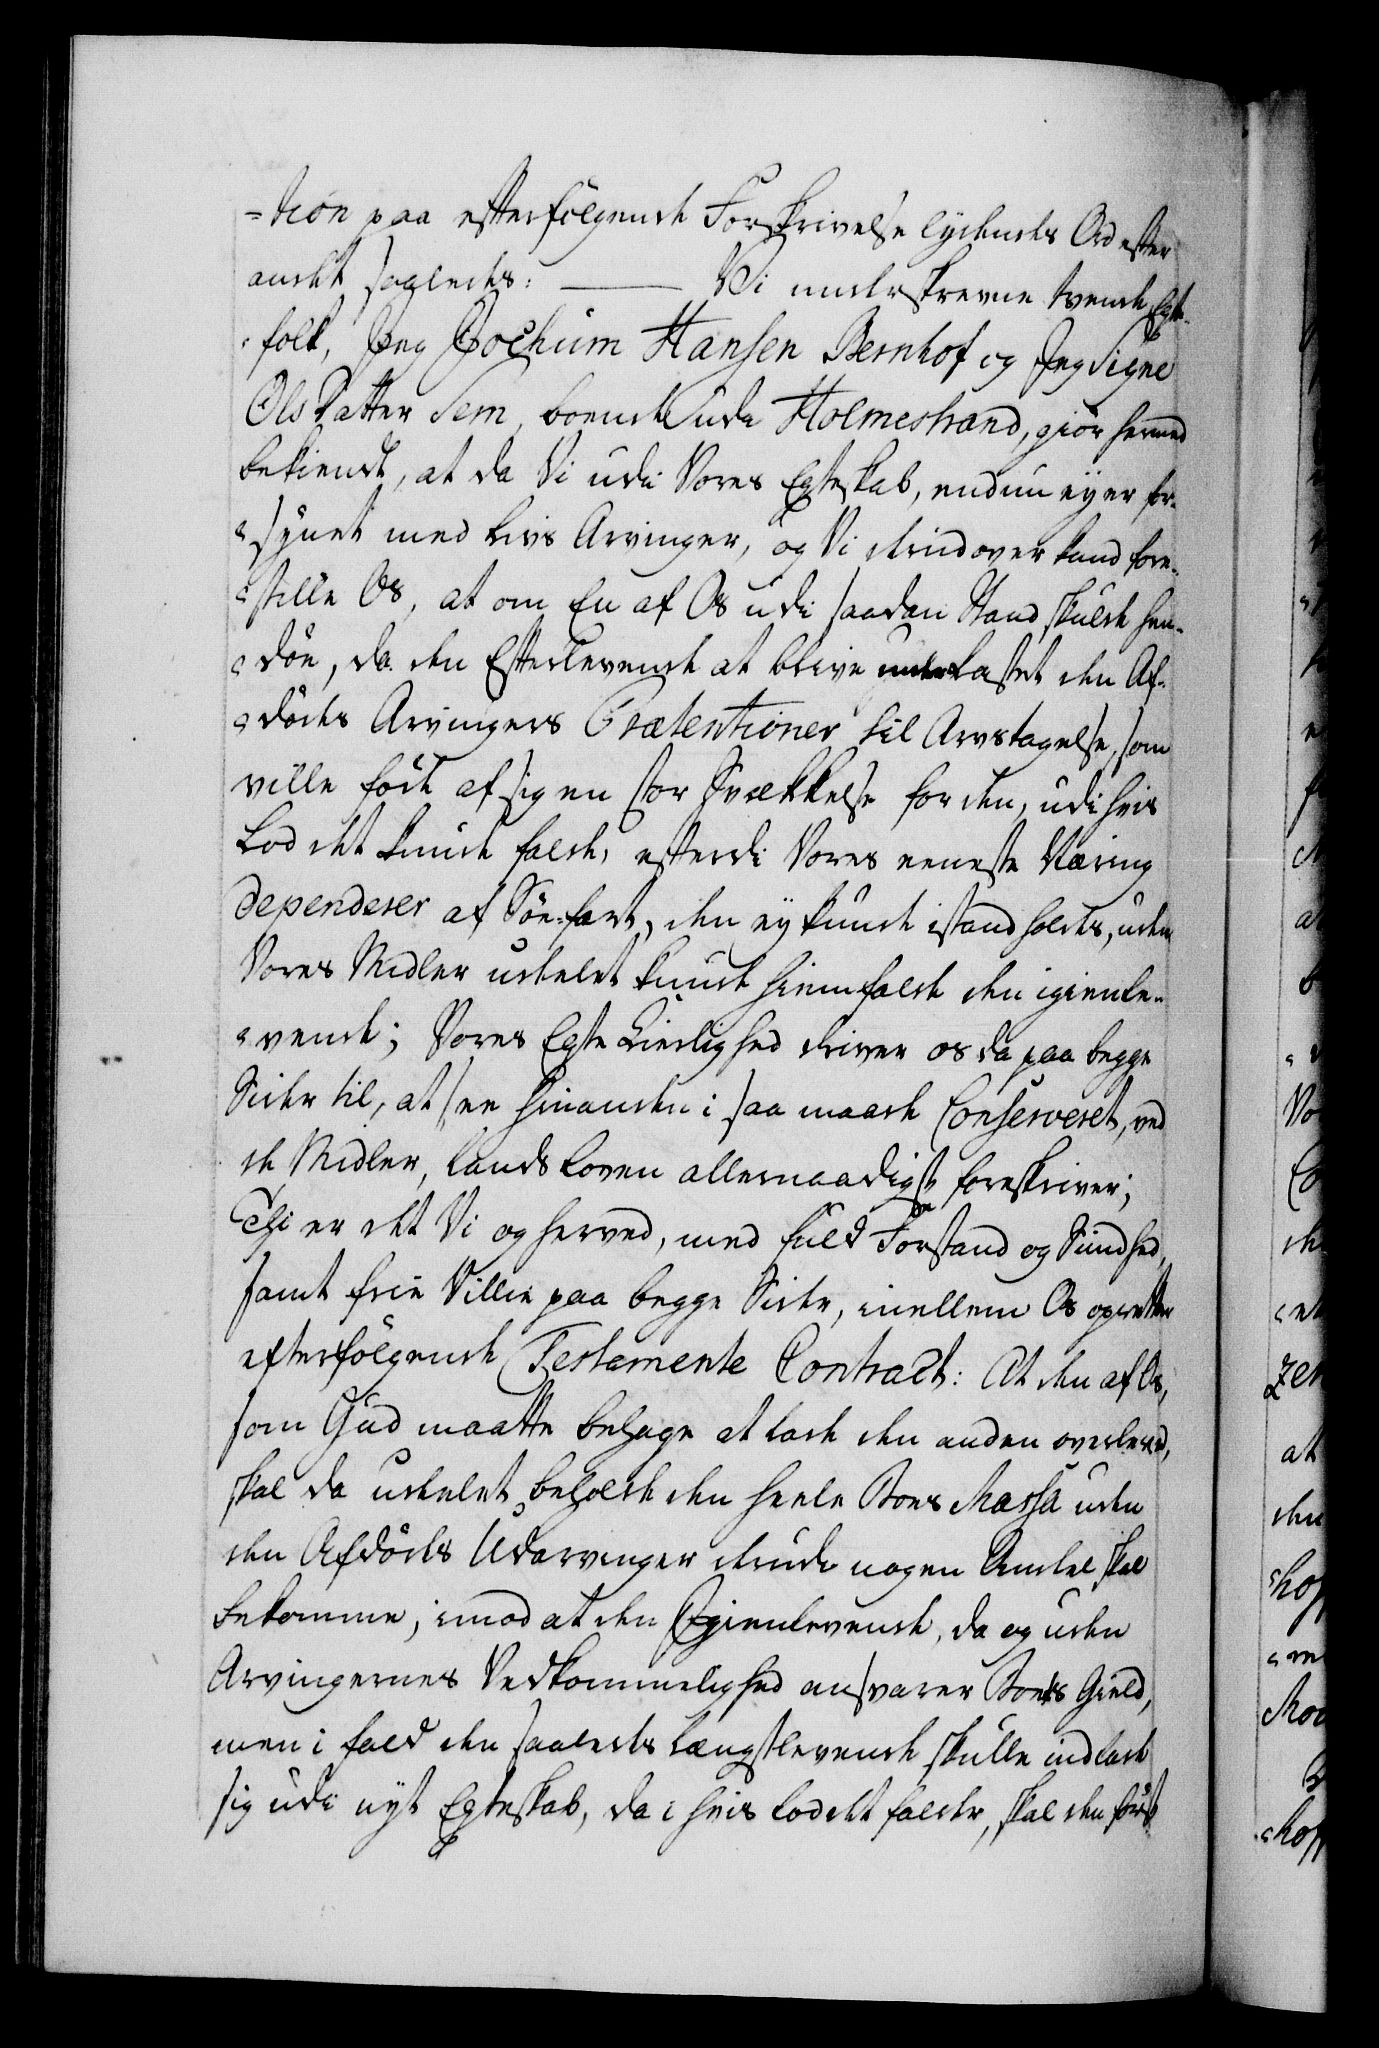 =tion paa efterfølgende Forskrivelse lydendes Ord efter
andet saaledes: ——— Vi underskrevne tvende Egte-
=folk, Jeg Jochum Hansen Bernhof og Jeg Signe
Ols Datter Sem, boende udi Holmestrand, giør hermed
bekiendt, at da Vi udi Vores Egteskab, endnu ey er for-
=synet med Livs Arvinger, og Vi derudover kand fore-
=stille Os, at om En af Os udi saadan Stand skulde hen-
=døe, da den Efterlevende at blive underkastet den Af-
=dødes Arvingers Prætentioner til Arvetagelse, som
ville føde af sig en stor Svækkelse for den, udi hvis
Lod det kunde falde, efterdi Vores eeneste Næring
dependerer af Søe-fart, den ey kunde istand holdes, uden
Vores Midler udeelet kunde hiemfalde den igienle-
=vende; Vores Egte Kierlighed driver os da paa begge
Sider til, at see hinanden i saa maade Conserveret, ved
de Midler, Lands Loven allernaadigst foreskriver;
Thi er det Vi og herved, med fuld Forstand og Sundhed,
samt frie Villie paa begge Sider, imellem Os opretter
efterfølgende Testamente Contract: At den af Os,
som Gud maatte behage at lade den anden overleve,
skal da udeelet beholde den heele Boes Massa uden
den Afdødes Udarvinger derudi nogen Andeel skal
bekomme, imod at den Igienlevende, da og uden
Arvingernes Vedkommelighed ansvarer Boets Gield,
men i fald den saaledes Længstlevende skulle indlade
sig udi nyt Egteskab, da i hvis Lod det falder, skal den først